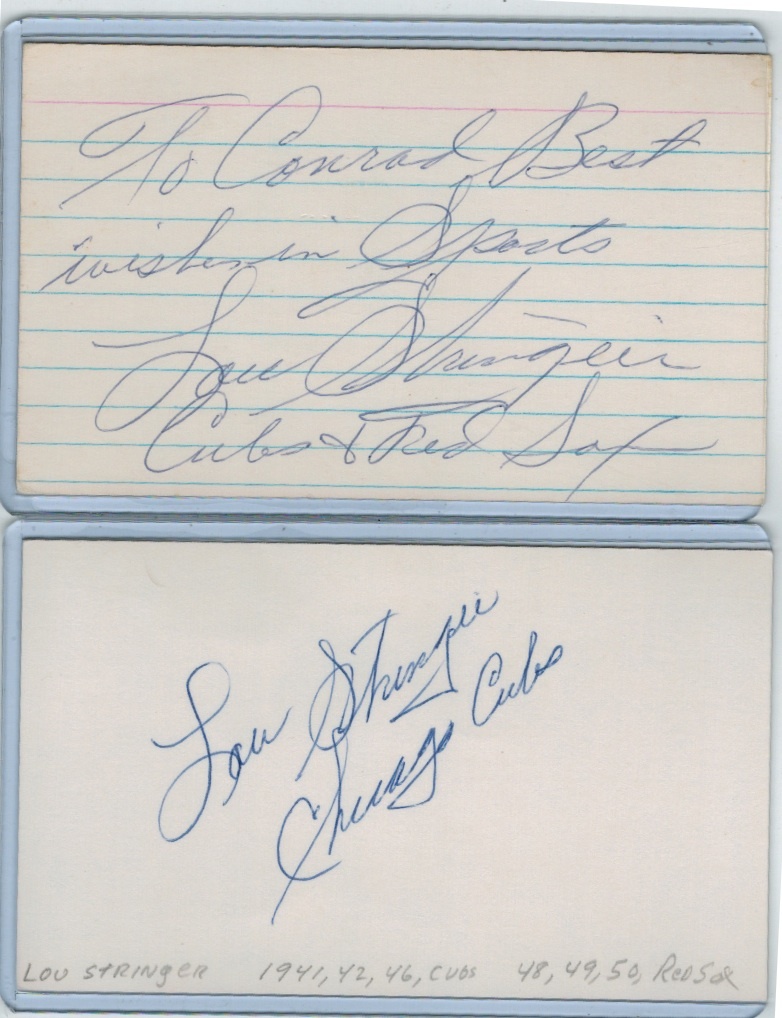 To Conrad Best
wishes in Sports
Lou Stringer
Cubs & Red Sox
Lou Stringer
Chicago Cubs
LOU STRINGER 1941, 42, 46, CUBS 48, 49, 50, RED SOX